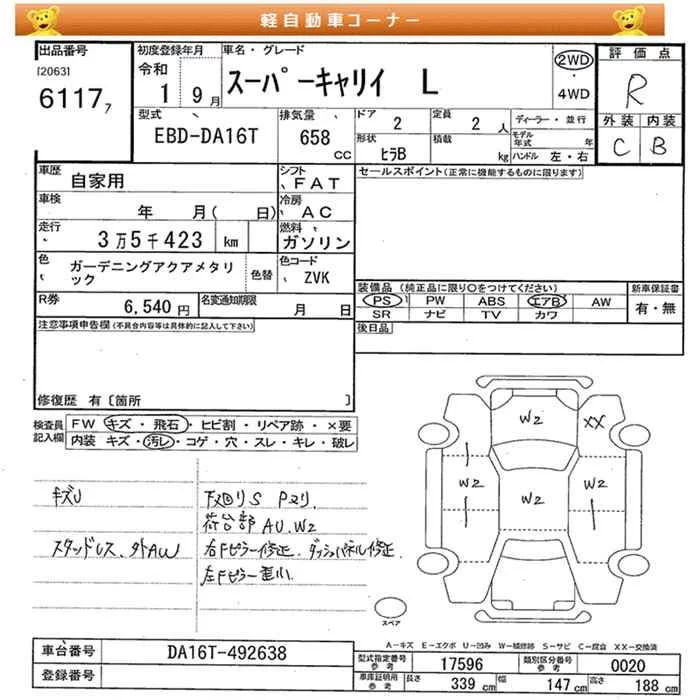 軽自動車コーナー
出品番号
[2063]
6117 7
初度登録年月
令和
1 9月
車名・グレード
スーパーキャリイ L
2WD
4WD
評価点
R
型式
EBD-DA16T
排気量
658
cc
ドア
2
定員
2 人
ディーラー・並行
形状
ヒラB
積載
kg
モデル年式 年
ハンドル 左・右
外装 内装
C B
車歴
自家用
シフト
FAT
セールスポイント(正常に機能するものに限ります)
車検
年 月( 日)
冷房
AC
走行
3万5千423 km
燃料
ガソリン
色
ガーデニングアクアメタリック
色替
色コード
ZVK
装備品(純正品に限り○をつけてください)
新車保証書
PS PW ABS エアB AW
有・無
SR ナビ TV カワ
R券
6,540円
名変通知期限
月 日
後日品
注意事項申告欄(不具合内容等は具体的に記入して下さい)
修復歴 有〔箇所 〕
検査員記入欄
FW キズ・飛石・ヒビ割・リペア跡・×要
内装 キズ・汚レ・コゲ・穴・スレ・キレ・破レ
キズU
下廻りS Pヌリ.
荷台部 AU.W2
スタッドレス、外AW
右Fピラー修正、ダッシュパネル修正.
左Fピラー歪小.
W2
XX
W2
W2
W2
スペア
A-キズ E-エクボ U-凹み W-補修跡 S-サビ C-腐食 XX-交換済
車台番号
DA16T-492638
登録番号
型式指定番号
参考
17596
類別区分番号
参考
0020
車庫証明用
参考
長さ
339 cm
幅
147 cm
高さ
188 cm